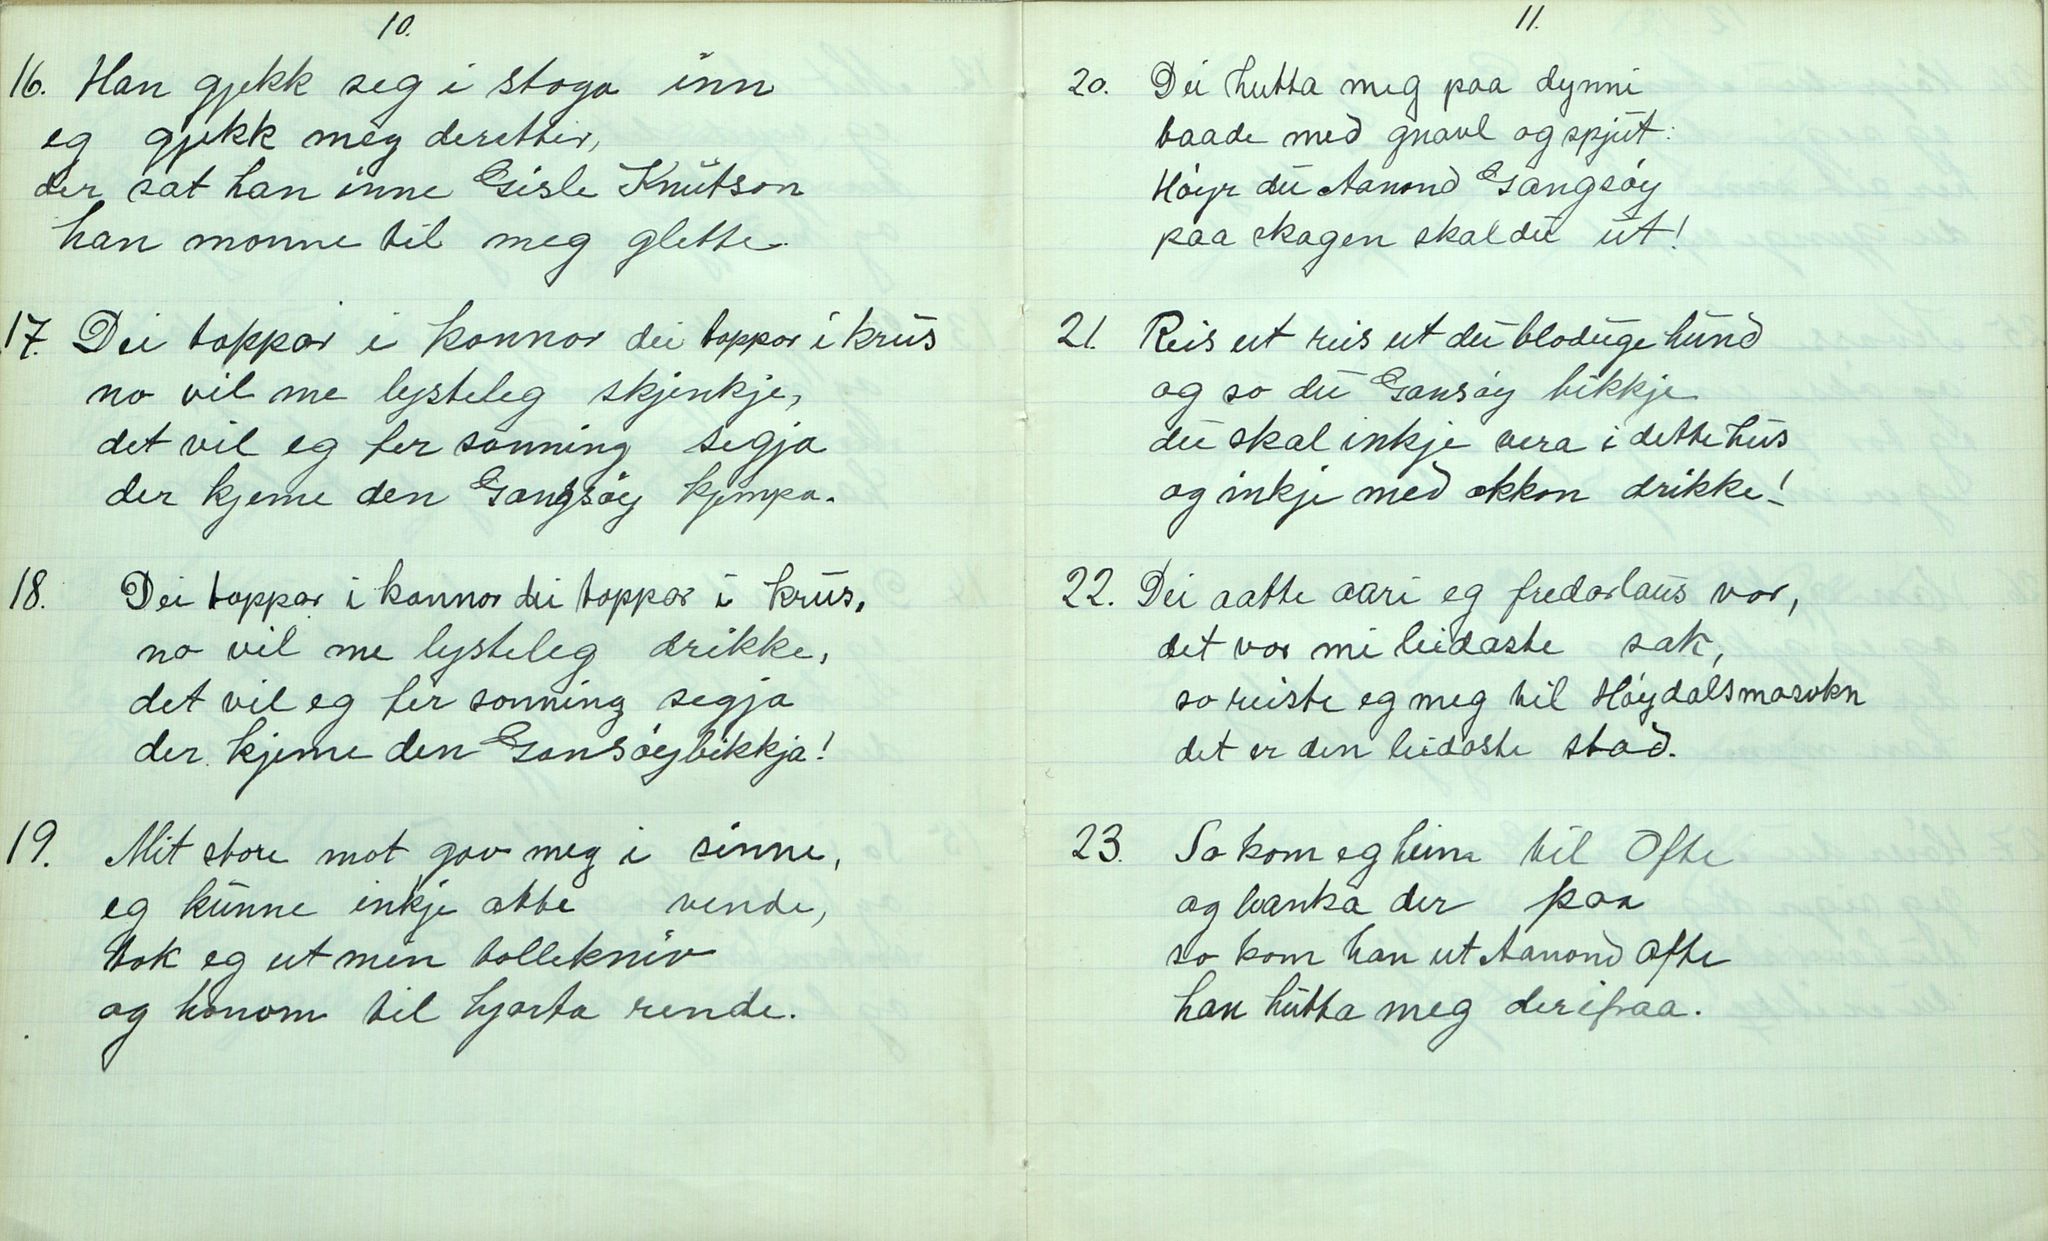 10.
16. Han gjekk seg i stoga inn
eg gjekk meg derettir,
der sat han inne Gisle Knutson
han monne til meg glette.
17. Dei tappar i kannor dei tappar i krus
no vil me lysteleg skjenkje,
det vil eg fer sanning segja
der kjeme den Gangsøy kjempa.
18. Dei tappar i kannor dei tappar i krus,
no vil me lysteleg drikke,
det vil eg fer sanning segja
der kjeme den Gansøybikkja!
19. Mit store mot gav meg i sinne,
eg kunne inkje atte vende,
tok eg ut min tollekniv
og honom til hjarta rende.
11.
20. Dei hutta meg paa dynni
baade med gnavl og spjut:
Høyr du Aanond Gangsøy
paa skagen skal du ut!
21. Reis ut reis ut du bloduge hund
og so du Gansøy bikkje
du skal inkje vera i dette hus
og inkje med okkon drikke!
22. Dei aatte aari eg fredarlaus var,
det var mi leidaste sak,
so reiste eg meg til Høydalsmosokn
det er den leidaste stad.
23. So kom eg heim til Ofte
og banka der paa
so kom han ut Aanond Ofte
han hutta meg derifraa.